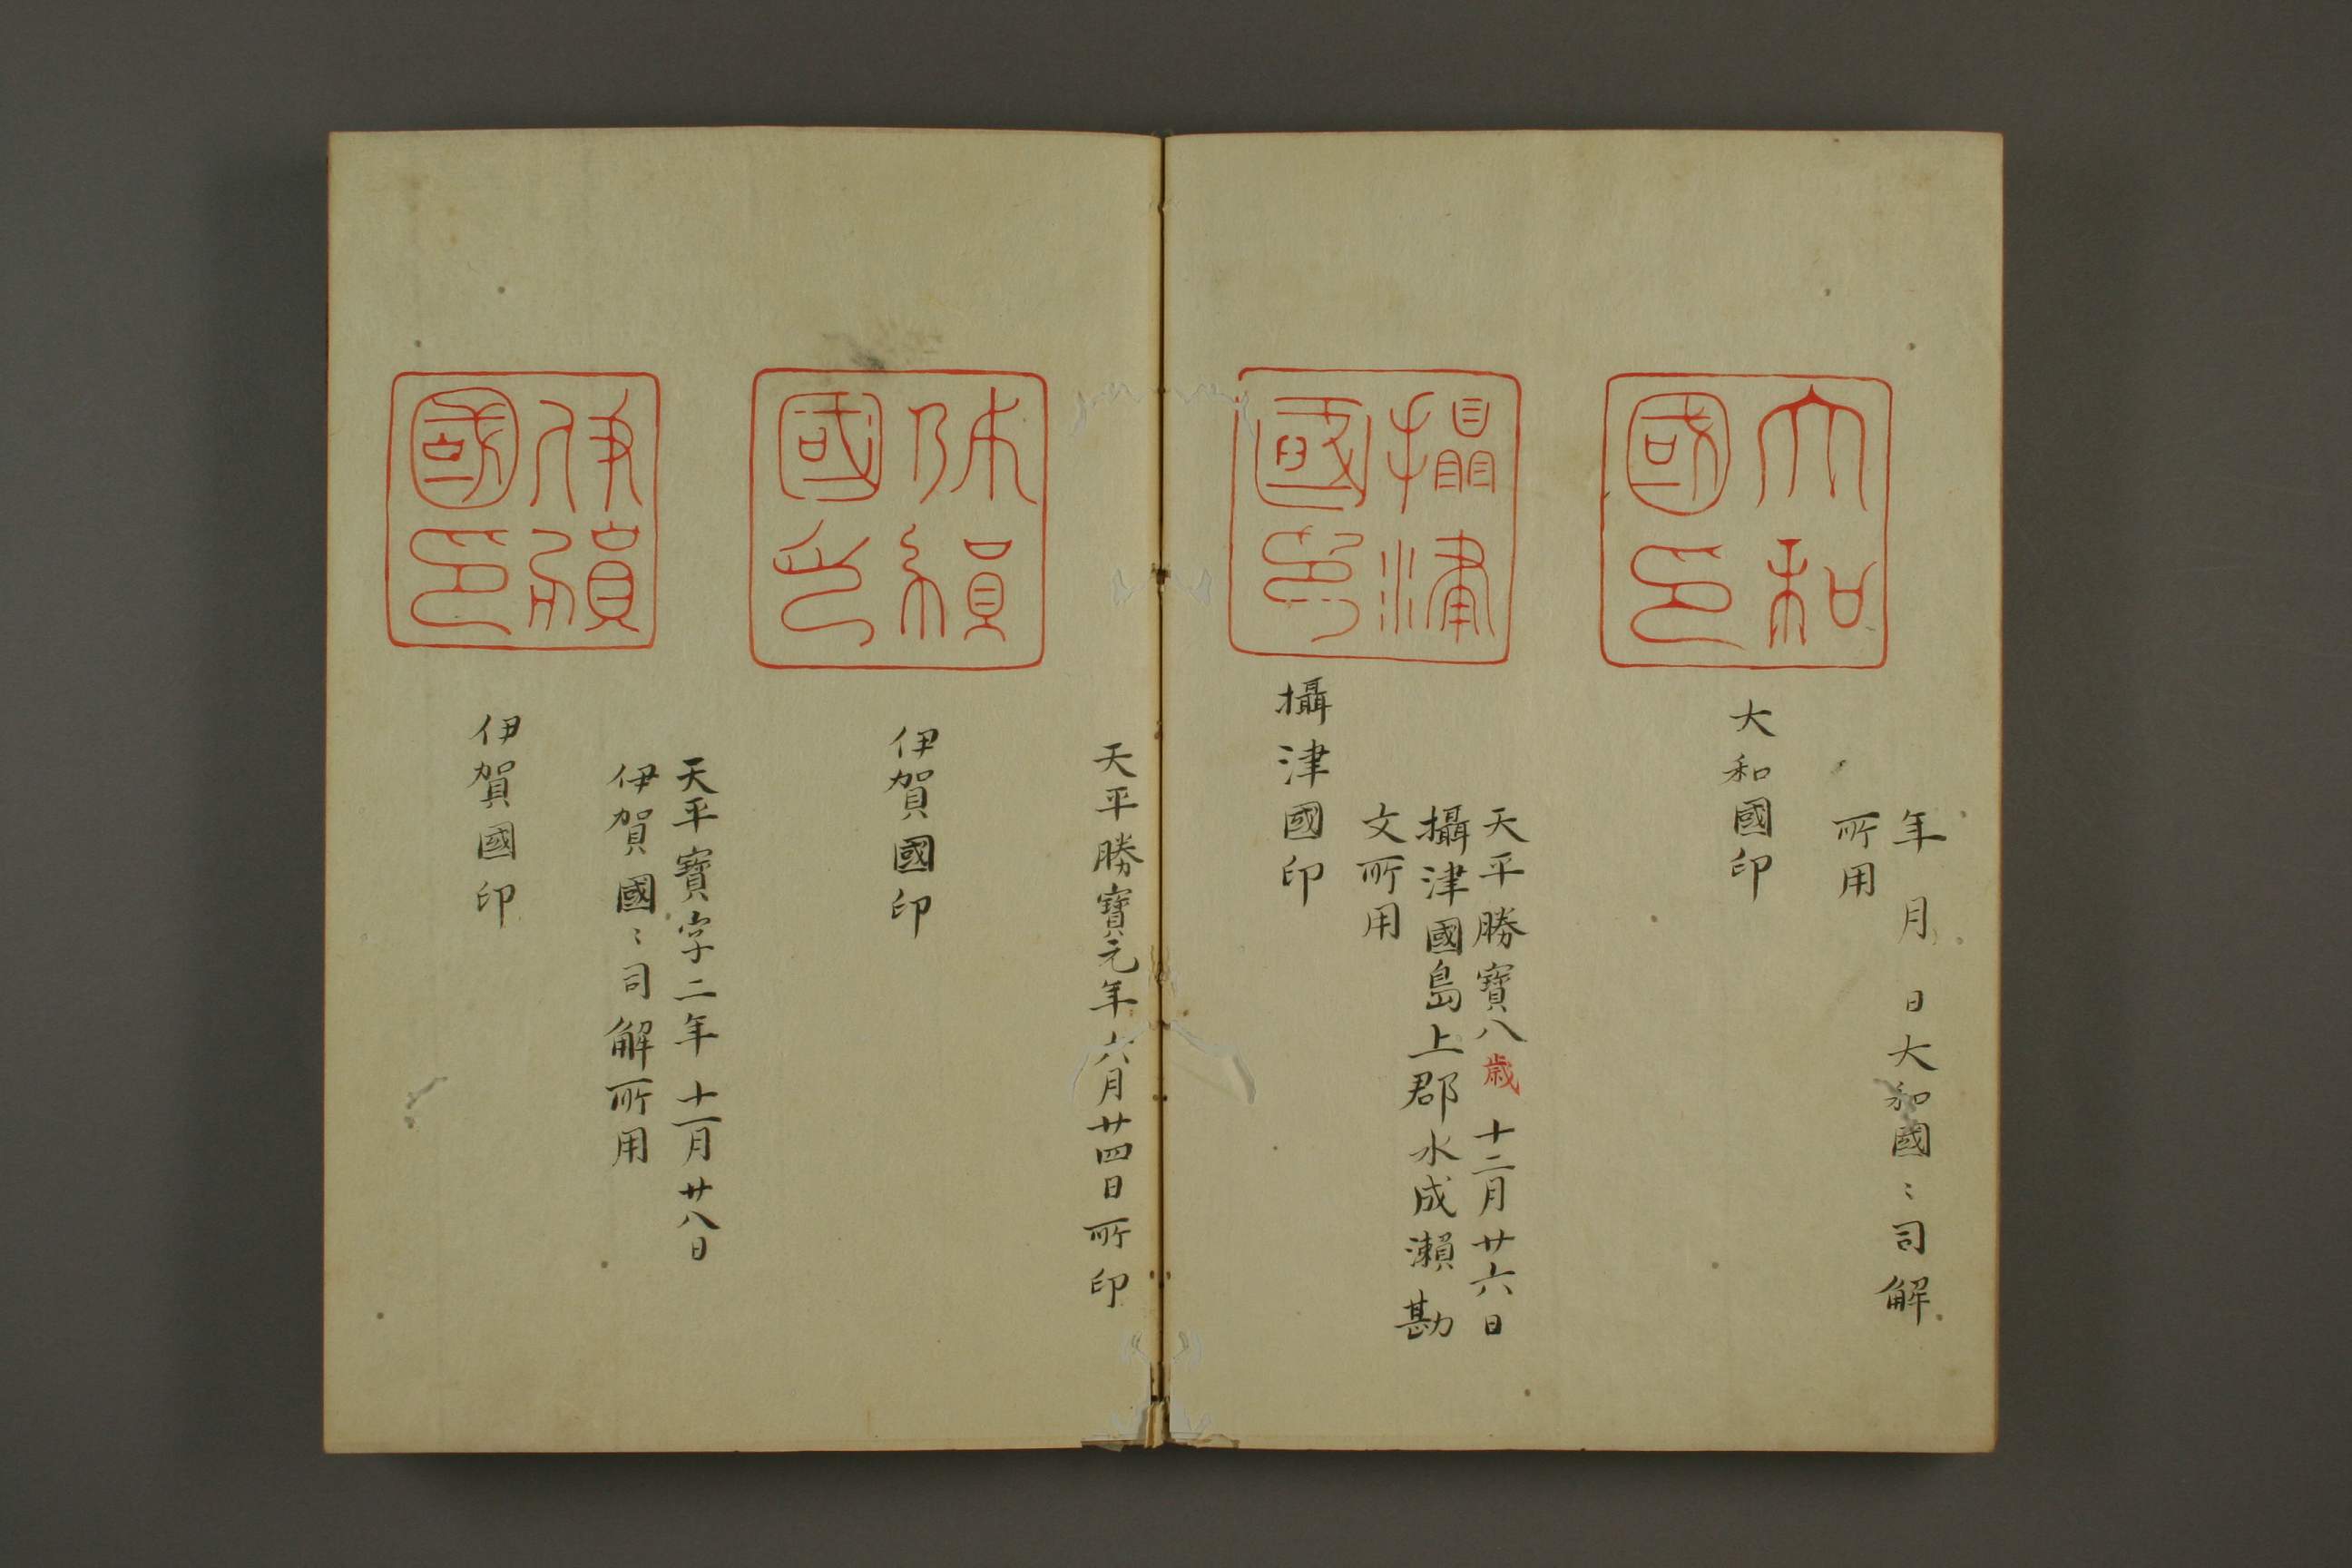 年 月 日大和國〻司解
所用
大和
國印
大和國印
天平勝寶八歳十二月廿六日
攝津國島上郡水成瀬勘
文所用
攝津
國印
攝津國印
天平勝寶元年六月廿四日所印
國印
伊賀國印
天平寶字二年十一月廿八日
伊賀國〻司解所用
伊賀
國印
伊賀國印